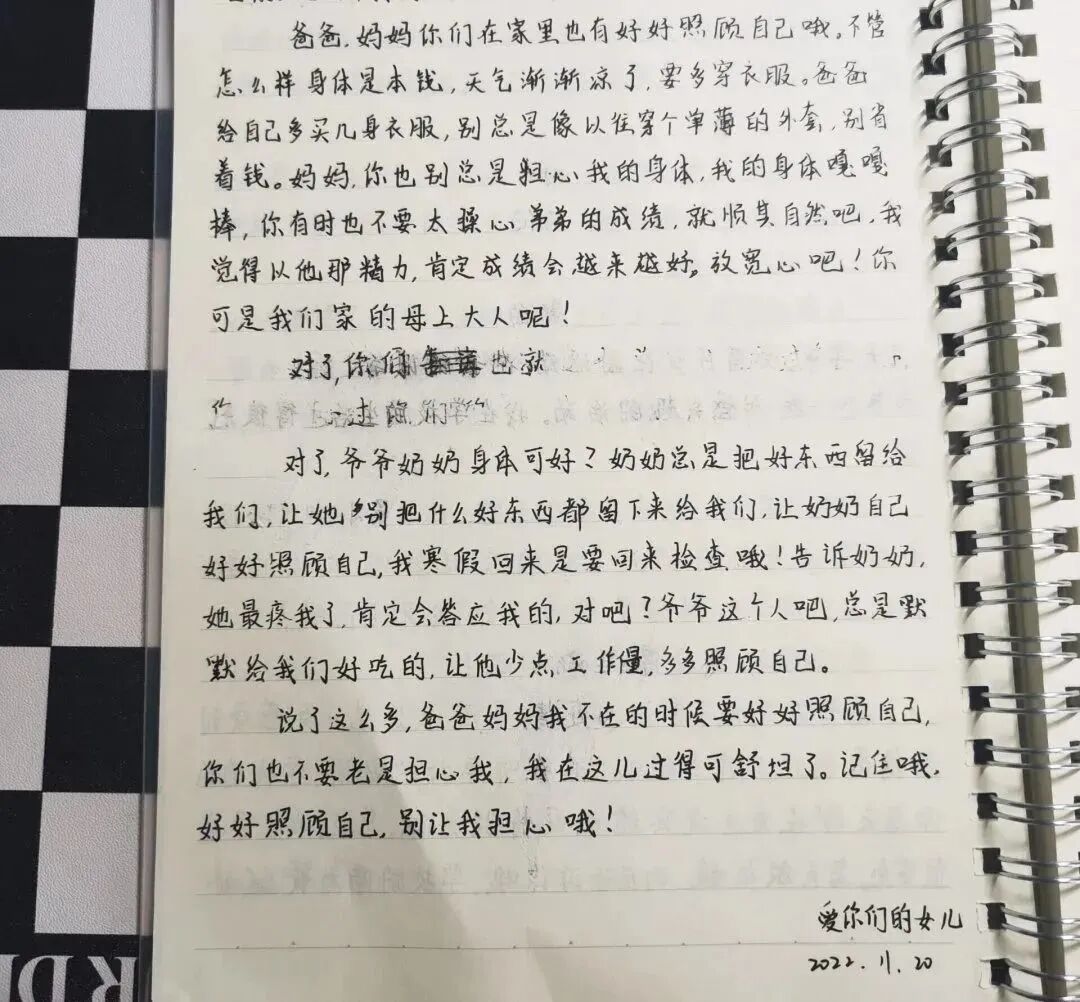 爸爸,妈妈你们在家里也有好好照顾自己哦。不管
怎么样身体是本钱,天气渐渐凉了,要多穿衣服。爸爸
给自己多买几身衣服,别总是像以往穿个单薄的外套,别省
着钱。妈妈,你也别总是担心我的身体,我的身体嘎嘎
棒,你有时也不要太操心弟弟的成绩,就顺其自然吧,我
觉得以他那精力,肯定成绩会越来越好。放宽心吧!你
可是我们家的母上大人呢!
对了,你们 也就
你
对了,爷爷奶奶身体可好?奶奶总是把好东西留给
我们,让她别把什么好东西都留下来给我们,让奶奶自己
好好照顾自己,我寒假回来是要回来检查哦!告诉奶奶,
她最疼我了,肯定会答应我的,对吧?爷爷这个人吧,总是默
默给我们好吃的,让他少点工作量,多多照顾自己。
说了这么多,爸爸妈妈我不在的时候要好好照顾自己,
你们也不要老是担心我,我在这儿过得可舒坦了。记住哦,
好好照顾自己,别让我担心哦!
爱你们的女儿
2022.11.20
RDI